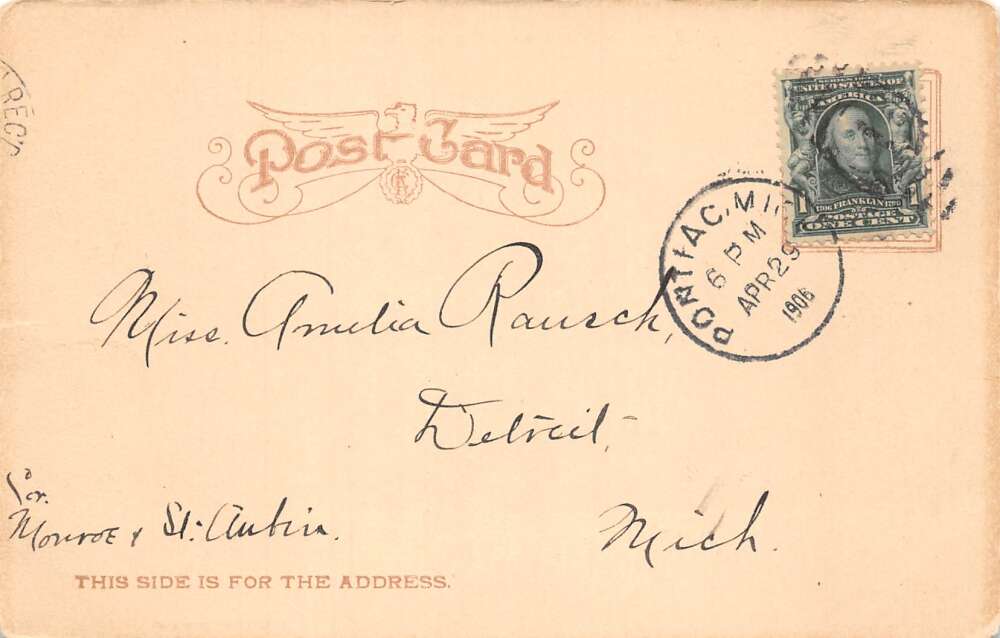 REC'D
Post Card
SERIES 1902
UNITED STATES OF
AMERICA
1706 FRANKLIN 1790
POSTAGE
1 ONE CENT 1
PONTIAC, MICH
6 PM
APR 29
1906
Miss. Amelia Rausch,
Detroit,
Mich.
cr.
Monroe & St. Aubin.
THIS SIDE IS FOR THE ADDRESS.